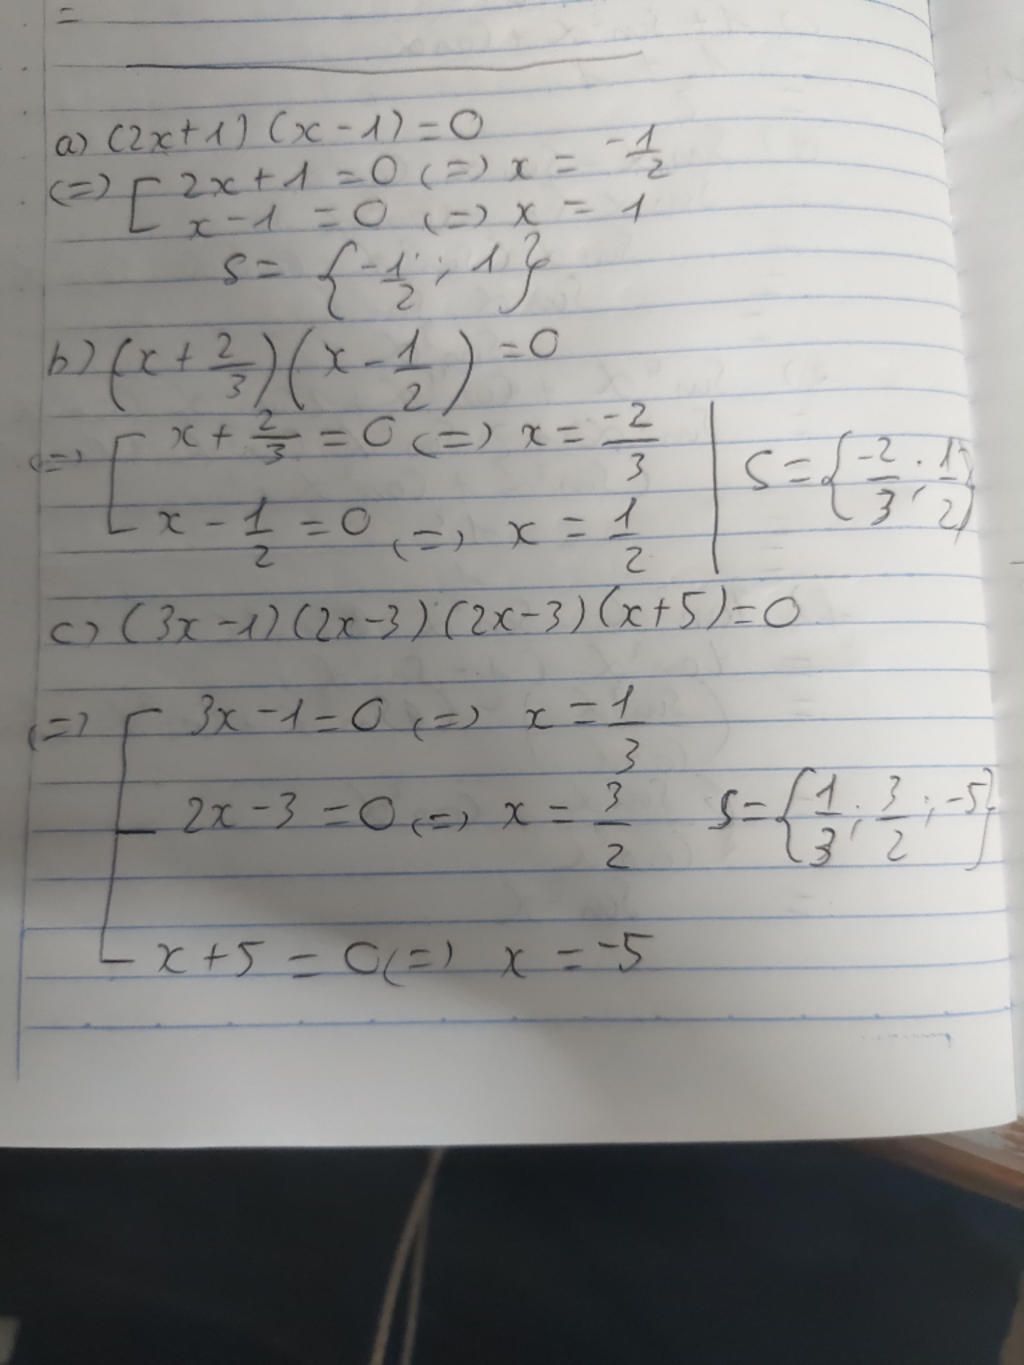 =
a) (2x+1) (x-1) = 0
(=) [ 2x+1 = 0 (=) x = -1/2
x-1 = 0 (=) x = 1
S = {-1/2; 1}
b) (x + 2/3) (x - 1/2) = 0
(=) [ x + 2/3 = 0 (=) x = -2/3
x - 1/2 = 0 (=) x = 1/2
S = {-2/3; 1/2}
c) (3x-1) (2x-3) (2x-3) (x+5) = 0
(=) [ 3x-1 = 0 (=) x = 1/3
2x-3 = 0 (=) x = 3/2
S = {1/3; 3/2; -5}
x+5 = 0 (=) x = -5